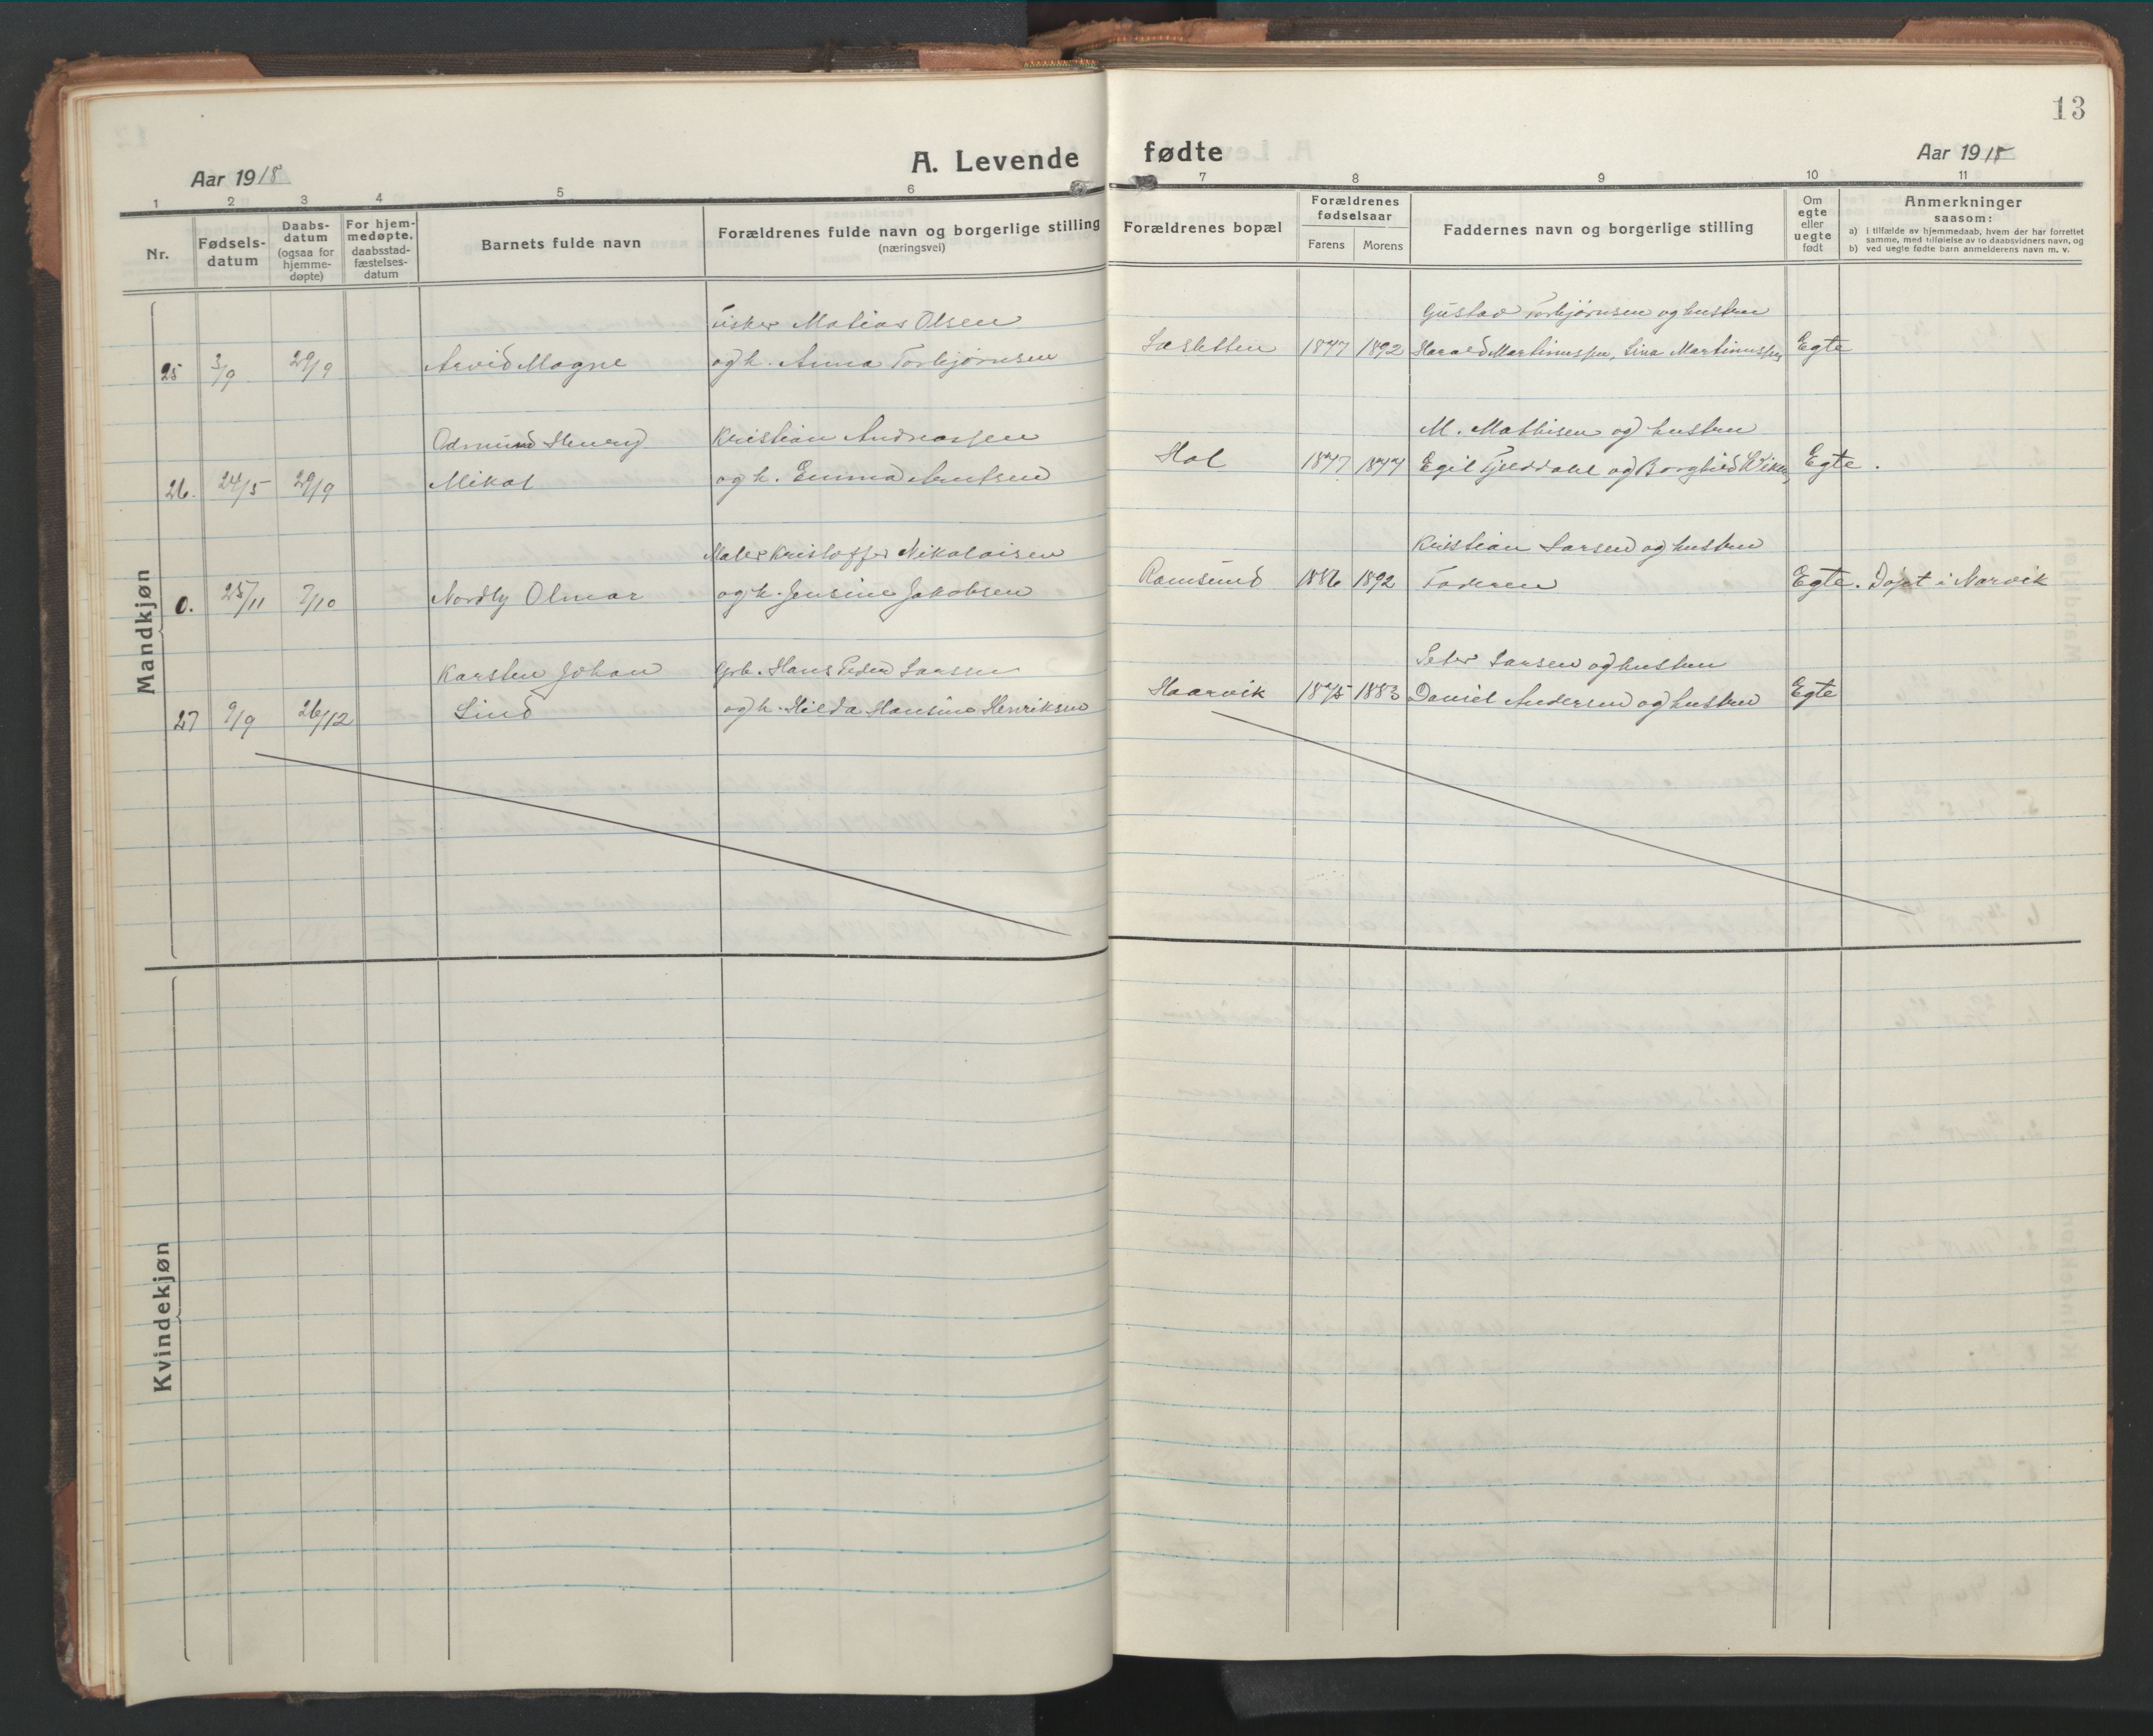 13
A. Levende fødte
Aar 1918
Aar 1918
1 2 3 4 5 6 7 8 9 10 11
Nr.
Fødsels-
datum
Daabs-
datum
(ogsaa for
hjemme-
døpte)
For hjem-
medøpte.
daabsstad-
fæstelses-
datum
Barnets fulde navn
Forældrenes fulde navn og borgerlige stilling
(næringsvei)
Forældrenes bopæl
Forældrenes
fødselsaar
Farens Morens
Faddernes navn og borgerlige stilling
Om
egte
eller
uegte
født
Anmerkninger
saasom:
a) i tilfælde av hjemmedaab, hvem der har forrettet
samme, med tilføielse av to daabsvidners navn, og
b) ved uegte fødte barn anmelderens navn m. v.
Mandkjøn
Fisker Matias Olsen Gustav Torbjørnsen og hustru
25 3/9 29/9 Arvid Magne og h. Anna Torbjørnsen 1892 Harald Martinussen, Lina Martinussen Egte
Odmund Henry Kristian Andreassen M. Mathisen og hustru
26. 24/5 29/9 Mikal og h. Emma Hol Egil Fjelddahl og Borghild Egte.
Maler Kristoffer Nikolaisen Kristian Larsen og hustru
0. 25/11 7/10 Nordly Olmar og h. Jensine Jakobsen Ramsund 1886 1892 Faderen Egte. Døpt i Narvik
Karsten Johan Grb. Hans Peder Larssen Peter Larsen og hustru
27 9/9 26/12 Lind og h. Hilda Hansine Henriksen Haarvik 1875 1883 Daniel Andersen og hustru Egte
Kvindekjøn